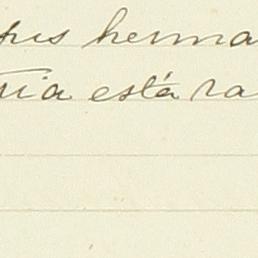 pus herma
ria está ra